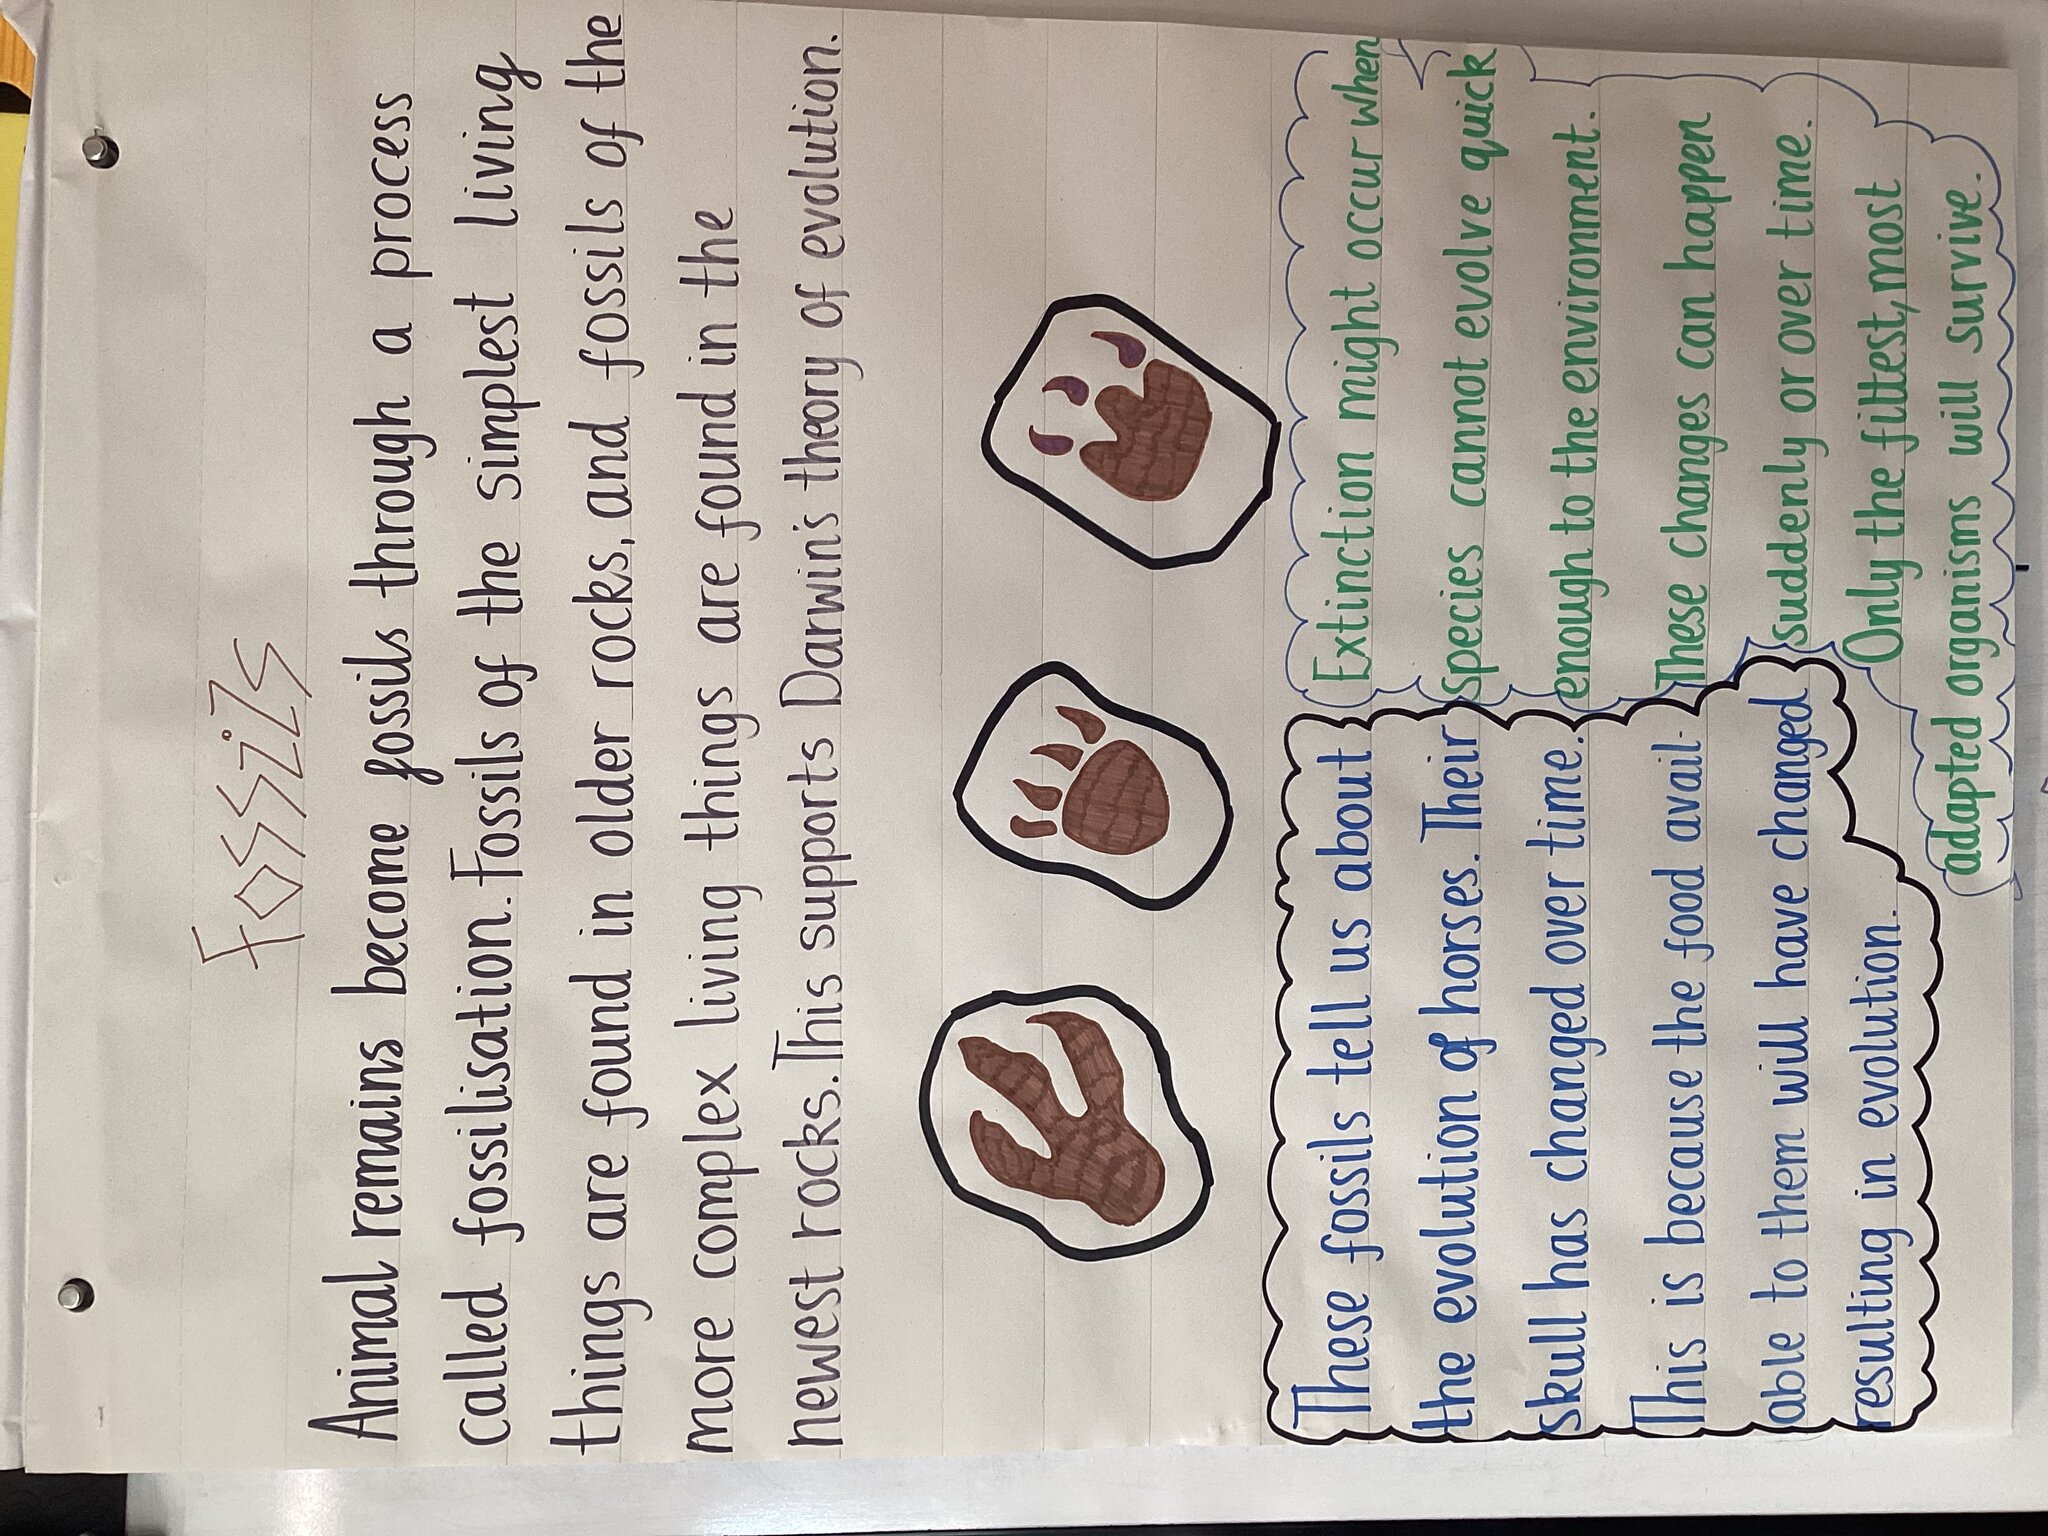 Fossils
Animal remains become fossils through a process
called fossilisation. Fossils of the simplest living
things are found in older rocks, and fossils of the
more complex living things are found in the
newest rocks. This supports Darwin's theory of evolution.
These fossils tell us about
the evolution of horses. Their
skull has changed over time.
This is because the food avail-
able to them will have changed
resulting in evolution.
Extinction might occur when
species cannot evolve quick
enough to the environment.
These changes can happen
suddenly or over time.
Only the fittest, most
adapted organisms will survive.